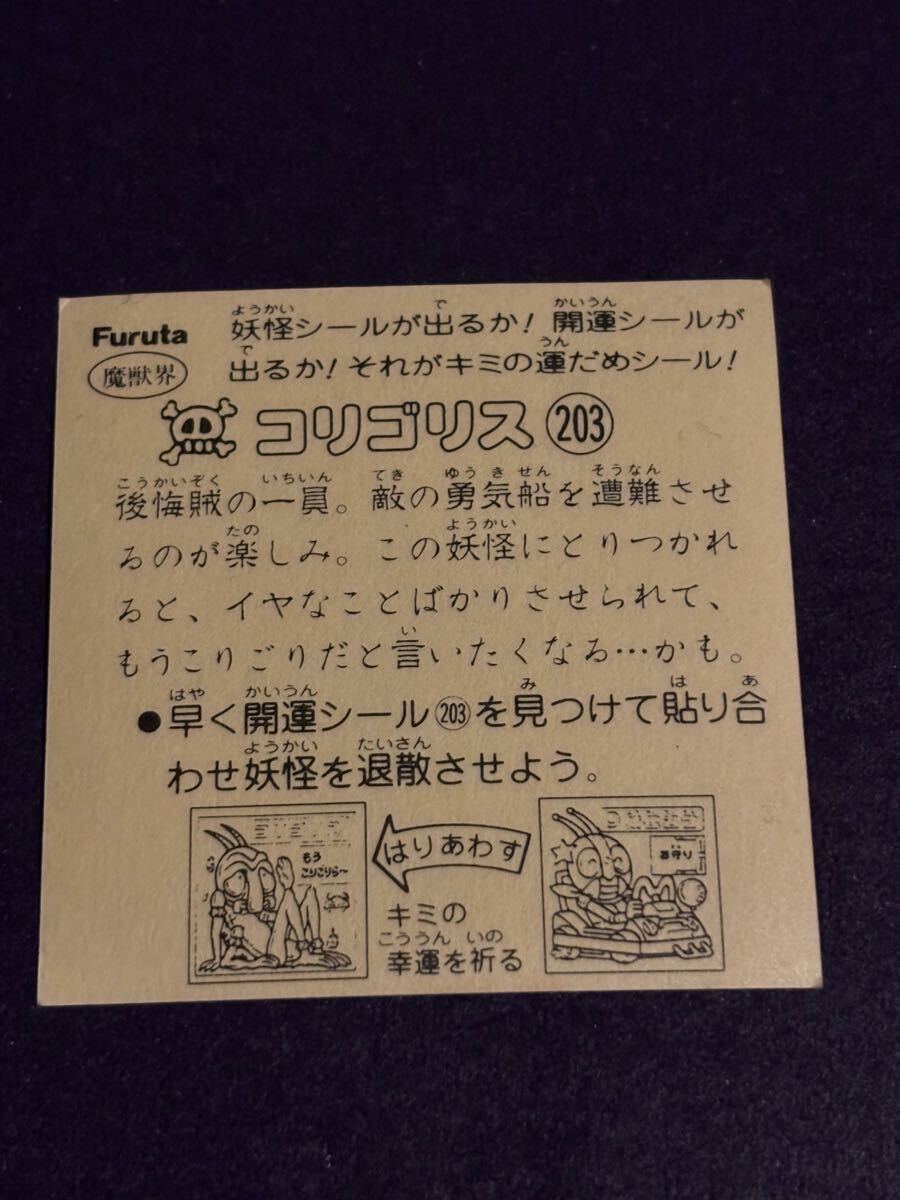 Furuta
魔獣界
妖怪シールが出るか！開運シールが
出るか！それがキミの運だめシール！
コリゴリス 203
後悔賊の一員。敵の勇気船を遭難させ
るのが楽しみ。この妖怪にとりつかれ
ると、イヤなことばかりさせられて、
もうこりごりだと言いたくなる…かも。
●早く開運シール203を見つけて貼り合
わせ妖怪を退散させよう。
もう
こりごりら〜
はりあわす
お守り
キミの
幸運を祈る